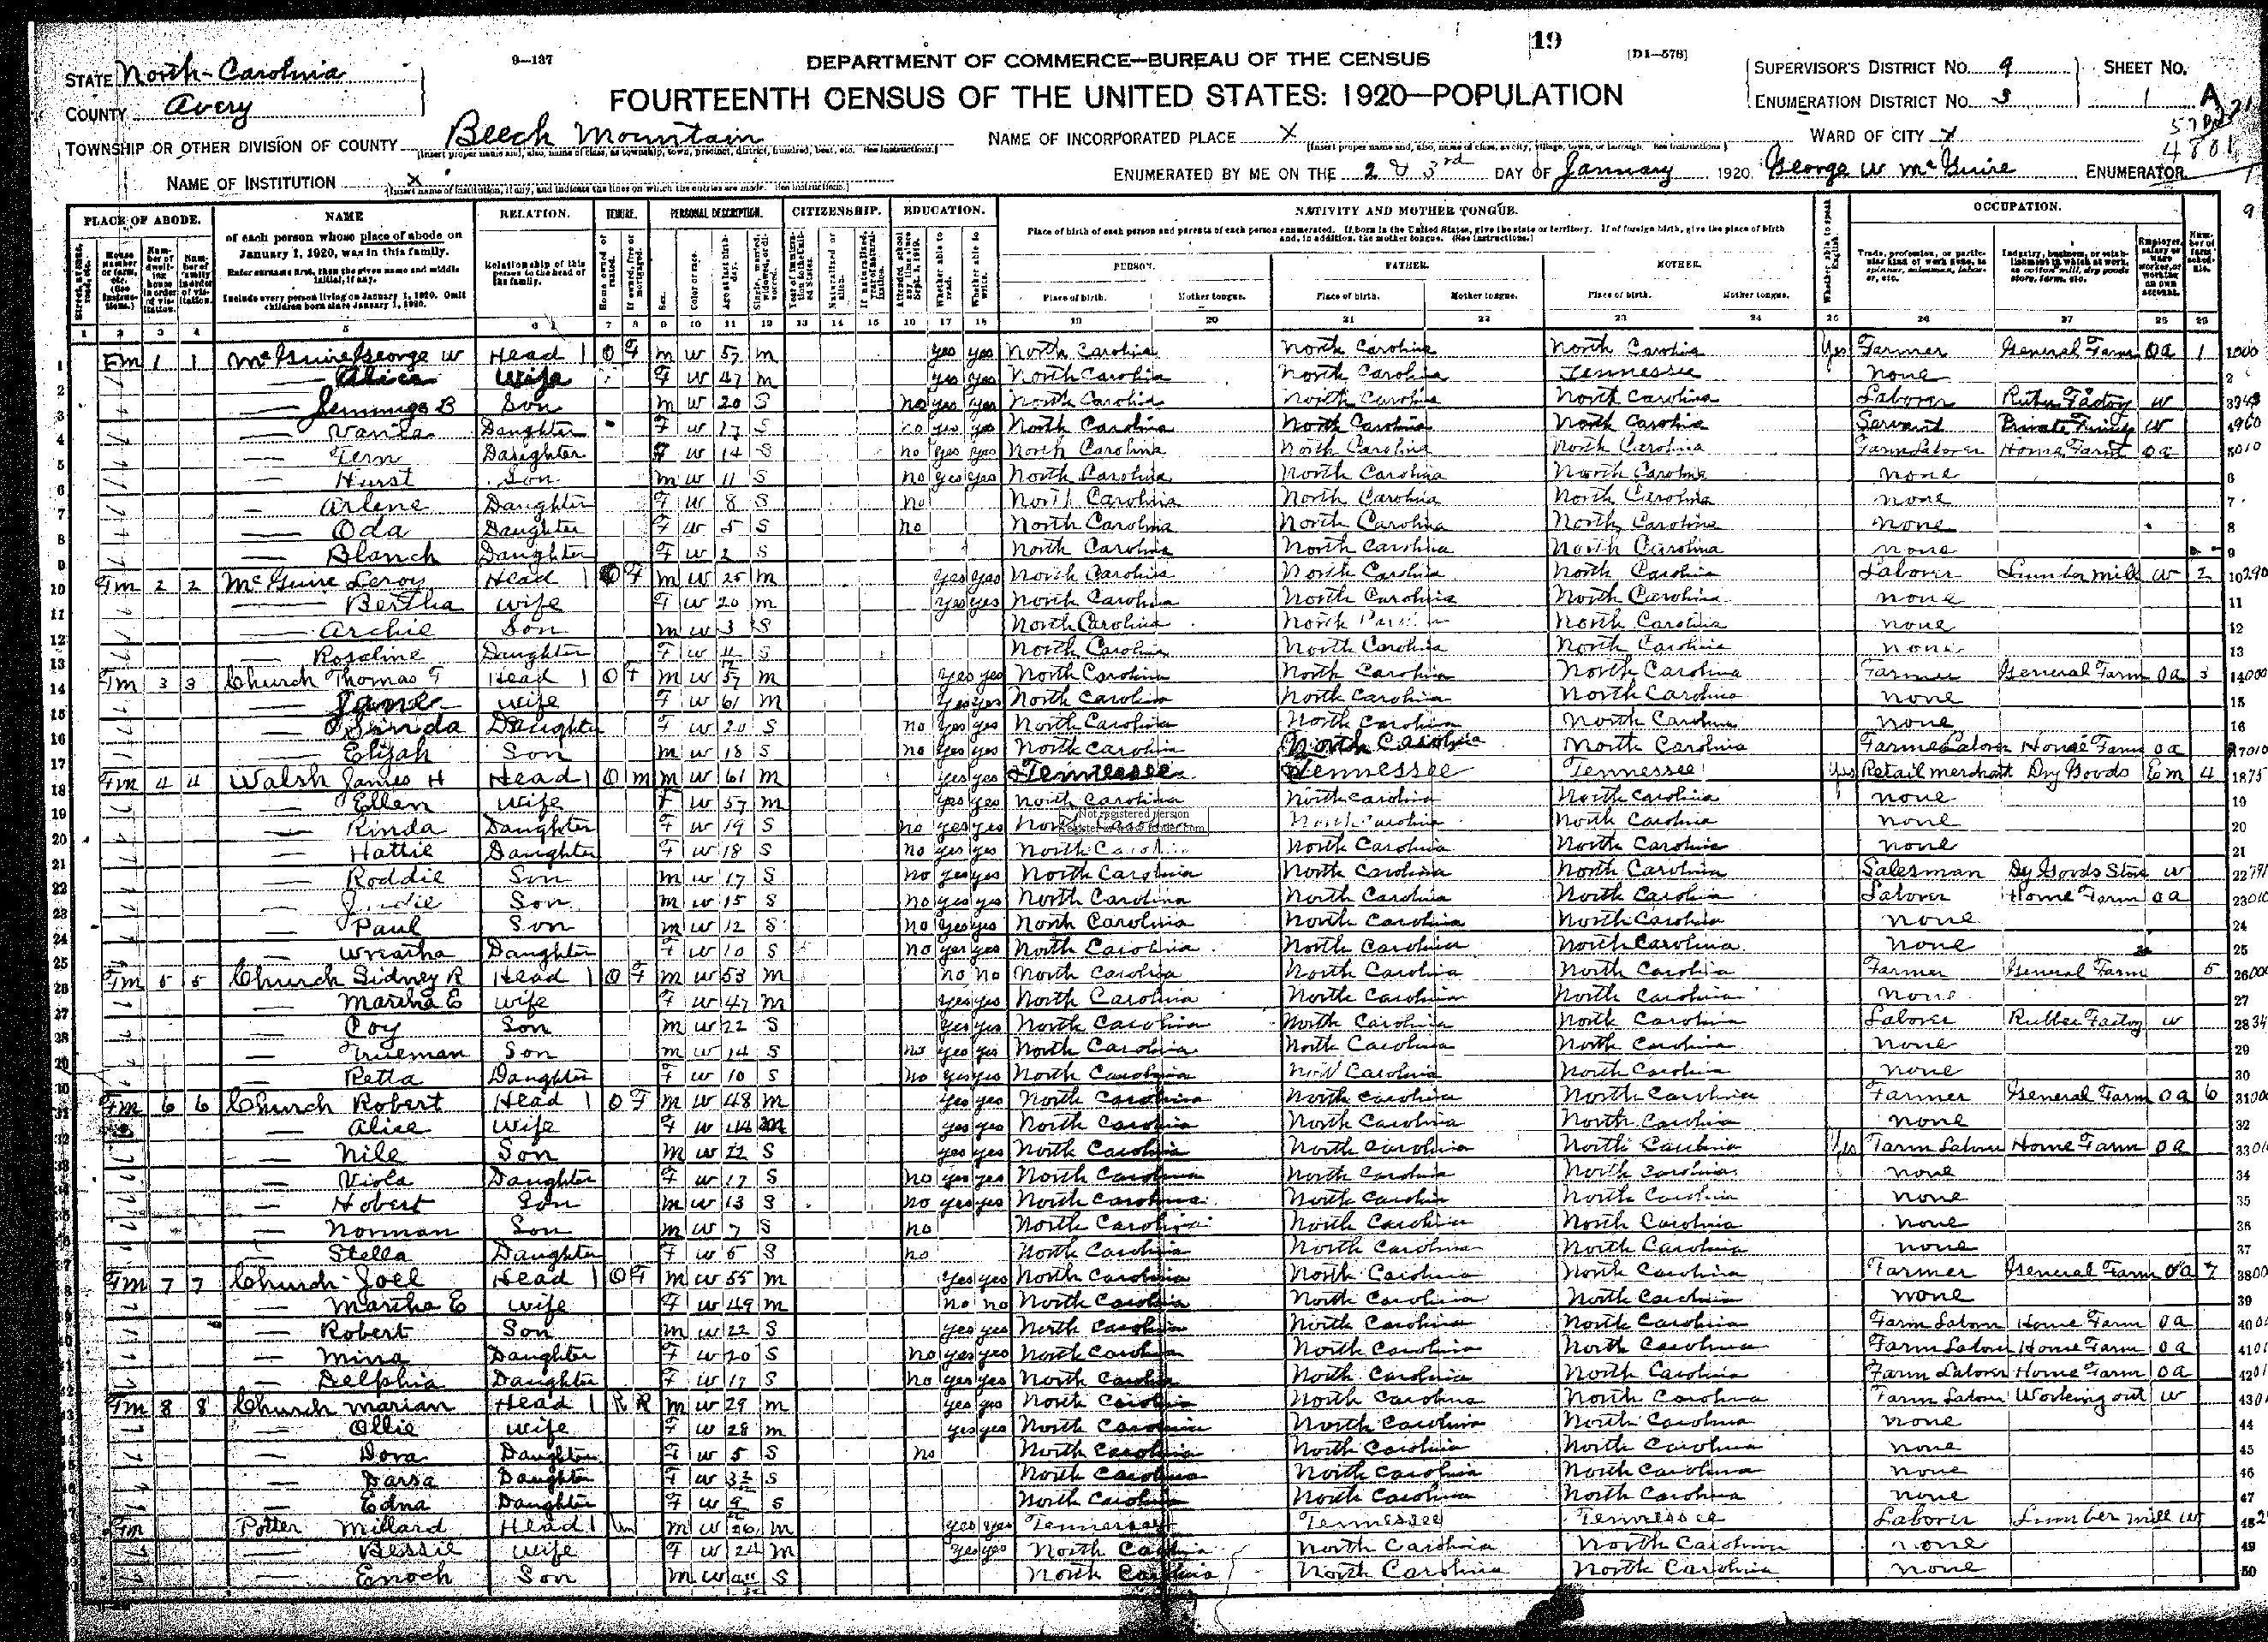 19
9—137
DEPARTMENT OF COMMERCE—BUREAU OF THE CENSUS
[D1—578]
STATE North-Carolina
COUNTY Avery
FOURTEENTH CENSUS OF THE UNITED STATES: 1920—POPULATION
SUPERVISOR'S DISTRICT NO. 9 SHEET NO.
ENUMERATION DISTRICT NO. 3 1 A
TOWNSHIP OR OTHER DIVISION OF COUNTY Beech Mountain NAME OF INCORPORATED PLACE X WARD OF CITY X
4801
NAME OF INSTITUTION X ENUMERATED BY ME ON THE 2 & 3rd DAY OF January 1920. George W McGuire ENUMERATOR
PLACE OF ABODE. NAME RELATION. TENURE. PERSONAL DESCRIPTION. CITIZENSHIP. EDUCATION. NATIVITY AND MOTHER TONGUE. OCCUPATION.
of each person whose place of abode on January 1, 1920, was in this family.
Enter surname first, then the given name and middle initial, if any.
Include every person living on January 1, 1920. Omit children born since January 1, 1920.
Relationship of this person to the head of the family.
Place of birth of each person and parents of each person enumerated. If born in the United States, give the state or territory. If of foreign birth, give the place of birth and, in addition, the mother tongue. (See Instructions.)
PERSON. FATHER. MOTHER.
Place of birth. Mother tongue. Place of birth. Mother tongue. Place of birth. Mother tongue.
1 2 3 4 5 6 7 8 9 10 11 12 13 14 15 16 17 18 19 20 21 22 23 24 25 26 27 28 29
1 Fm 1 1 McGuire George W Head 1 O F M W 57 M yes yes North Carolina North Carolina North Carolina Yes Farmer General Farm OA 1
2 — Alice Wife F W 47 M yes yes North Carolina North Carolina Tennessee none
3 — Jennings B Son M W 20 S no yes yes North Carolina North Carolina North Carolina Laborer Factory W
4 — Daughter F W 17 S no yes yes North Carolina North Carolina North Carolina Servant Private Family W
5 — Fern Daughter F W 14 S no yes yes North Carolina North Carolina North Carolina Farm Laborer Home Farm OA
6 — Hurst Son M W 11 S no yes yes North Carolina North Carolina North Carolina none
7 — Arlene Daughter F W 8 S no North Carolina North Carolina North Carolina none
8 — Oda Daughter F W 5 S no North Carolina North Carolina North Carolina none
9 — Blanch Daughter F W 2 S North Carolina North Carolina North Carolina none
10 Fm 2 2 McGuire Leroy Head 1 O F M W 25 M yes yes North Carolina North Carolina North Carolina Laborer Lumber mill W 2
11 — Bertha Wife F W 20 M yes yes North Carolina North Carolina North Carolina none
12 — Archie Son M W 3 S North Carolina North Carolina North Carolina none
13 — Rosaline Daughter F W S North Carolina North Carolina North Carolina none
14 Fm 3 3 Church Thomas F Head 1 O F M W 57 M yes yes North Carolina North Carolina North Carolina Farmer General Farm OA 3
15 — Jane Wife F W 61 M yes yes North Carolina North Carolina North Carolina none
16 — Daughter F W 20 S no yes yes North Carolina North Carolina North Carolina none
17 — Elijah Son M W 18 S no yes yes North Carolina North Carolina North Carolina Farm Laborer Home Farm OA
18 Fm 4 4 Walsh James H Head 1 O M M W 61 M yes yes Tennessee Tennessee Tennessee Yes Retail merchant Dry Goods Em 4
19 — Ellen Wife F W 57 M yes yes North Carolina North Carolina North Carolina none
20 — Rinda Daughter F W 19 S no yes yes North Carolina North Carolina North Carolina none
Not registered version
21 — Hattie Daughter F W 18 S no yes yes North Carolina North Carolina North Carolina none
22 — Roddie Son M W 17 S no yes yes North Carolina North Carolina North Carolina Salesman Dry Goods Store W
23 — Son M W 15 S no yes yes North Carolina North Carolina North Carolina Laborer Home Farm OA
24 — Paul Son M W 12 S no yes yes North Carolina North Carolina North Carolina none
25 — Wreatha Daughter F W 10 S no yes yes North Carolina North Carolina North Carolina none
26 Fm 5 5 Church Sidney R Head 1 O F M W 53 M no no North Carolina North Carolina North Carolina Farmer General Farm 5
27 — Martha E Wife F W 47 M yes yes North Carolina North Carolina North Carolina none
28 — Coy Son M W 22 S yes yes North Carolina North Carolina North Carolina Laborer Rubber Factory W
29 — Trueman Son M W 14 S no yes yes North Carolina North Carolina North Carolina none
30 — Retta Daughter F W 10 S no yes yes North Carolina North Carolina North Carolina none
31 Fm 6 6 Church Robert Head 1 O F M W 48 M yes yes North Carolina North Carolina North Carolina Farmer General Farm OA 6
32 — Alice Wife F W 44 M yes yes North Carolina North Carolina North Carolina none
33 — Nile Son M W 22 S yes yes North Carolina North Carolina North Carolina Yes Farm Laborer Home Farm OA
34 — Viola Daughter F W 17 S no yes yes North Carolina North Carolina North Carolina none
35 — Hobert Son M W 13 S no yes yes North Carolina North Carolina North Carolina none
36 — Norman Son M W 7 S no North Carolina North Carolina North Carolina none
37 — Stella Daughter F W 5 S no North Carolina North Carolina North Carolina none
38 Fm 7 7 Church Joel Head 1 O F M W 55 M yes yes North Carolina North Carolina North Carolina Farmer General Farm OA 7
39 — Martha E Wife F W 49 M no no North Carolina North Carolina North Carolina none
40 — Robert Son M W 22 S yes yes North Carolina North Carolina North Carolina Farm Labor Home Farm OA
41 — Minna Daughter F W 20 S no yes yes North Carolina North Carolina North Carolina Farm Labor Home Farm OA
42 — Delphia Daughter F W 17 S no yes yes North Carolina North Carolina North Carolina Farm Laborer Home Farm OA
43 Fm 8 8 Church Marian Head 1 R R M W 29 M yes yes North Carolina North Carolina North Carolina Farm Labor Working out W
44 — Ollie Wife F W 28 M yes yes North Carolina North Carolina North Carolina none
45 — Dora Daughter F W 5 S no North Carolina North Carolina North Carolina none
46 — Darsa Daughter F W S North Carolina North Carolina North Carolina none
47 — Edna Daughter F W S North Carolina North Carolina North Carolina none
48 Fm Potter Millard Head 1 M W 26 M yes yes Tennessee Tennessee Tennessee Laborer Lumber mill W
49 — Bessie Wife F W 24 M yes yes North Carolina North Carolina North Carolina none
50 — Enoch Son M W S North Carolina North Carolina North Carolina none